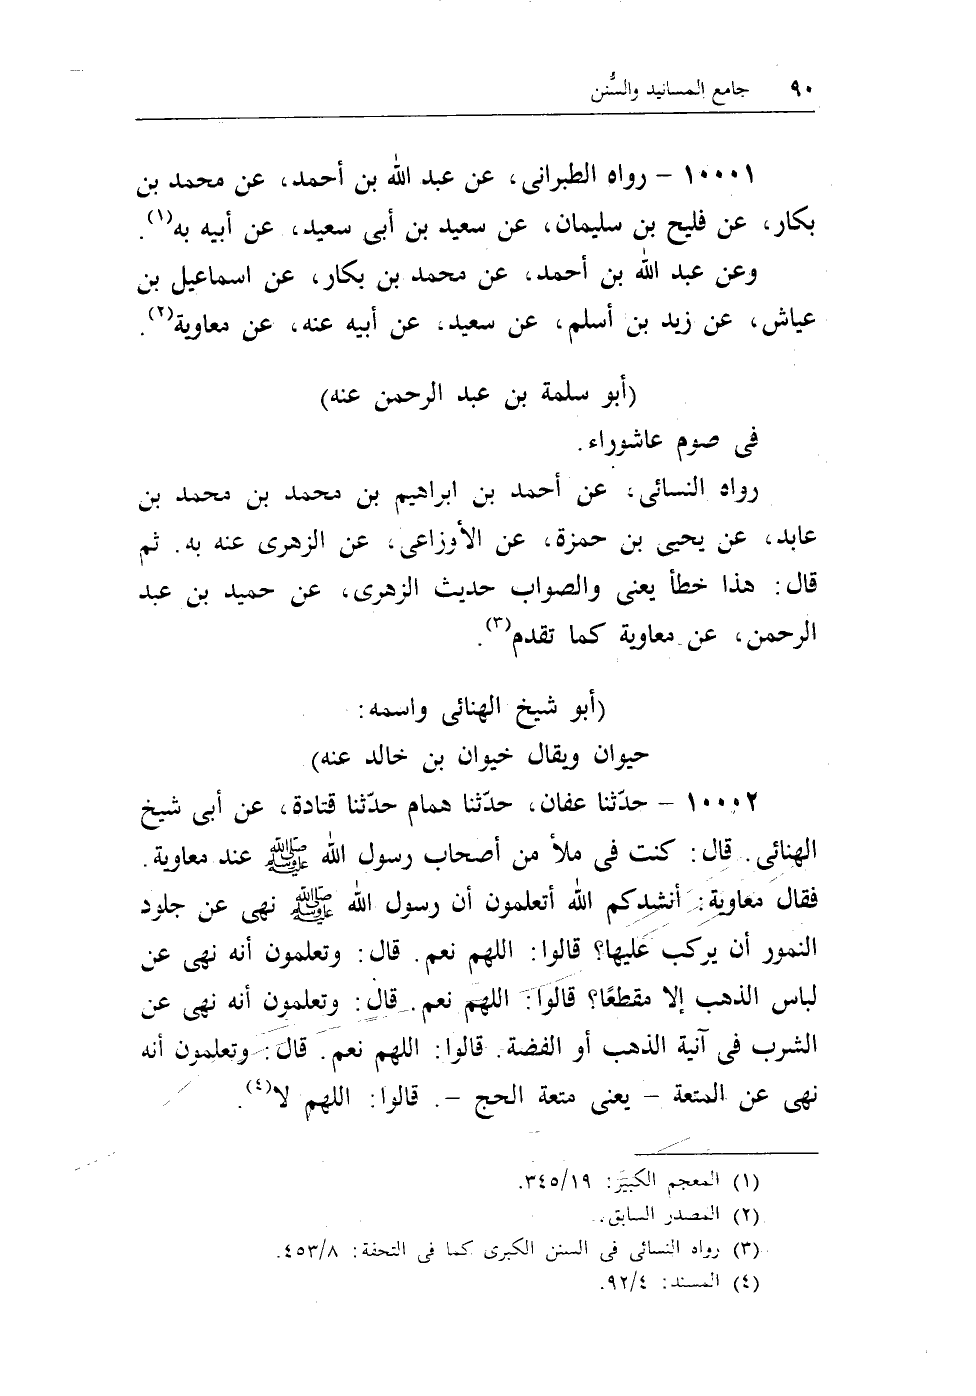 ٩٠ جامع المسانيد والسُّنن
١٠٠٠١ - رواه الطبرانى، عن عبد الله بن أحمد، عن محمد بن
بكار، عن فليح بن سليمان، عن سعيد بن أبى سعيد، عن أبيه به(١).
وعن عبد الله بن أحمد، عن محمد بن بكار، عن اسماعيل بن
عياش، عن زيد بن أسلم، عن سعيد، عن أبيه عنه، عن معاوية(٢).
(أبو سلمة بن عبد الرحمن عنه)
فى صوم عاشوراء.
رواه النسائى، عن أحمد بن ابراهيم بن محمد بن محمد بن
عابد، عن يحيى بن حمزة، عن الأوزاعى، عن الزهرى عنه به. ثم
قال: هذا خطأ يعنى والصواب حديث الزهرى، عن حميد بن عبد
الرحمن، عن معاوية كما تقدم(٣).
(أبو شيخ الهنائى واسمه:
حيوان ويقال خيوان بن خالد عنه)
١٠٠٠٢ - حدّثنا عفان، حدّثنا همام حدّثنا قتادة، عن أبى شيخ
الهنائى. قال: كنت فى ملأ من أصحاب رسول الله ﷺ عند معاوية.
فقال معاوية: أنشدكم الله أتعلمون أن رسول الله ﷺ نهى عن جلود
النمور أن يركب عليها؟ قالوا: اللهم نعم. قال: وتعلمون أنه نهى عن
لباس الذهب إلا مقطعًا؟ قالوا: اللهم نعم. قال: وتعلمون أنه نهى عن
الشرب فى آنية الذهب أو الفضة. قالوا: اللهم نعم. قال: وتعلمون أنه
نهى عن المتعة - يعنى متعة الحج -. قالوا: اللهم لا(٤).
(١) المعجم الكبير: ٣٤٥/١٩.
(٢) المصدر السابق.
(٣) رواه النسائى فى السنن الكبرى كما فى التحفة: ٤٥٣/٨.
(٤) المسند: ٩٢/٤.